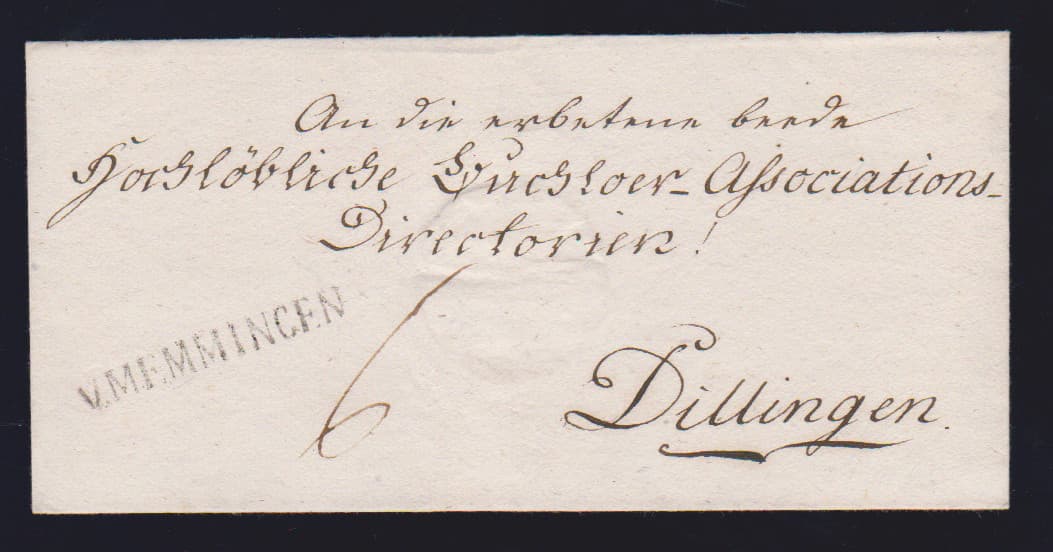 An die erbetene beede
Hochlöbliche Buchloer-Associations-
Directorien!
V.MEMMINGEN
6
Dillingen.